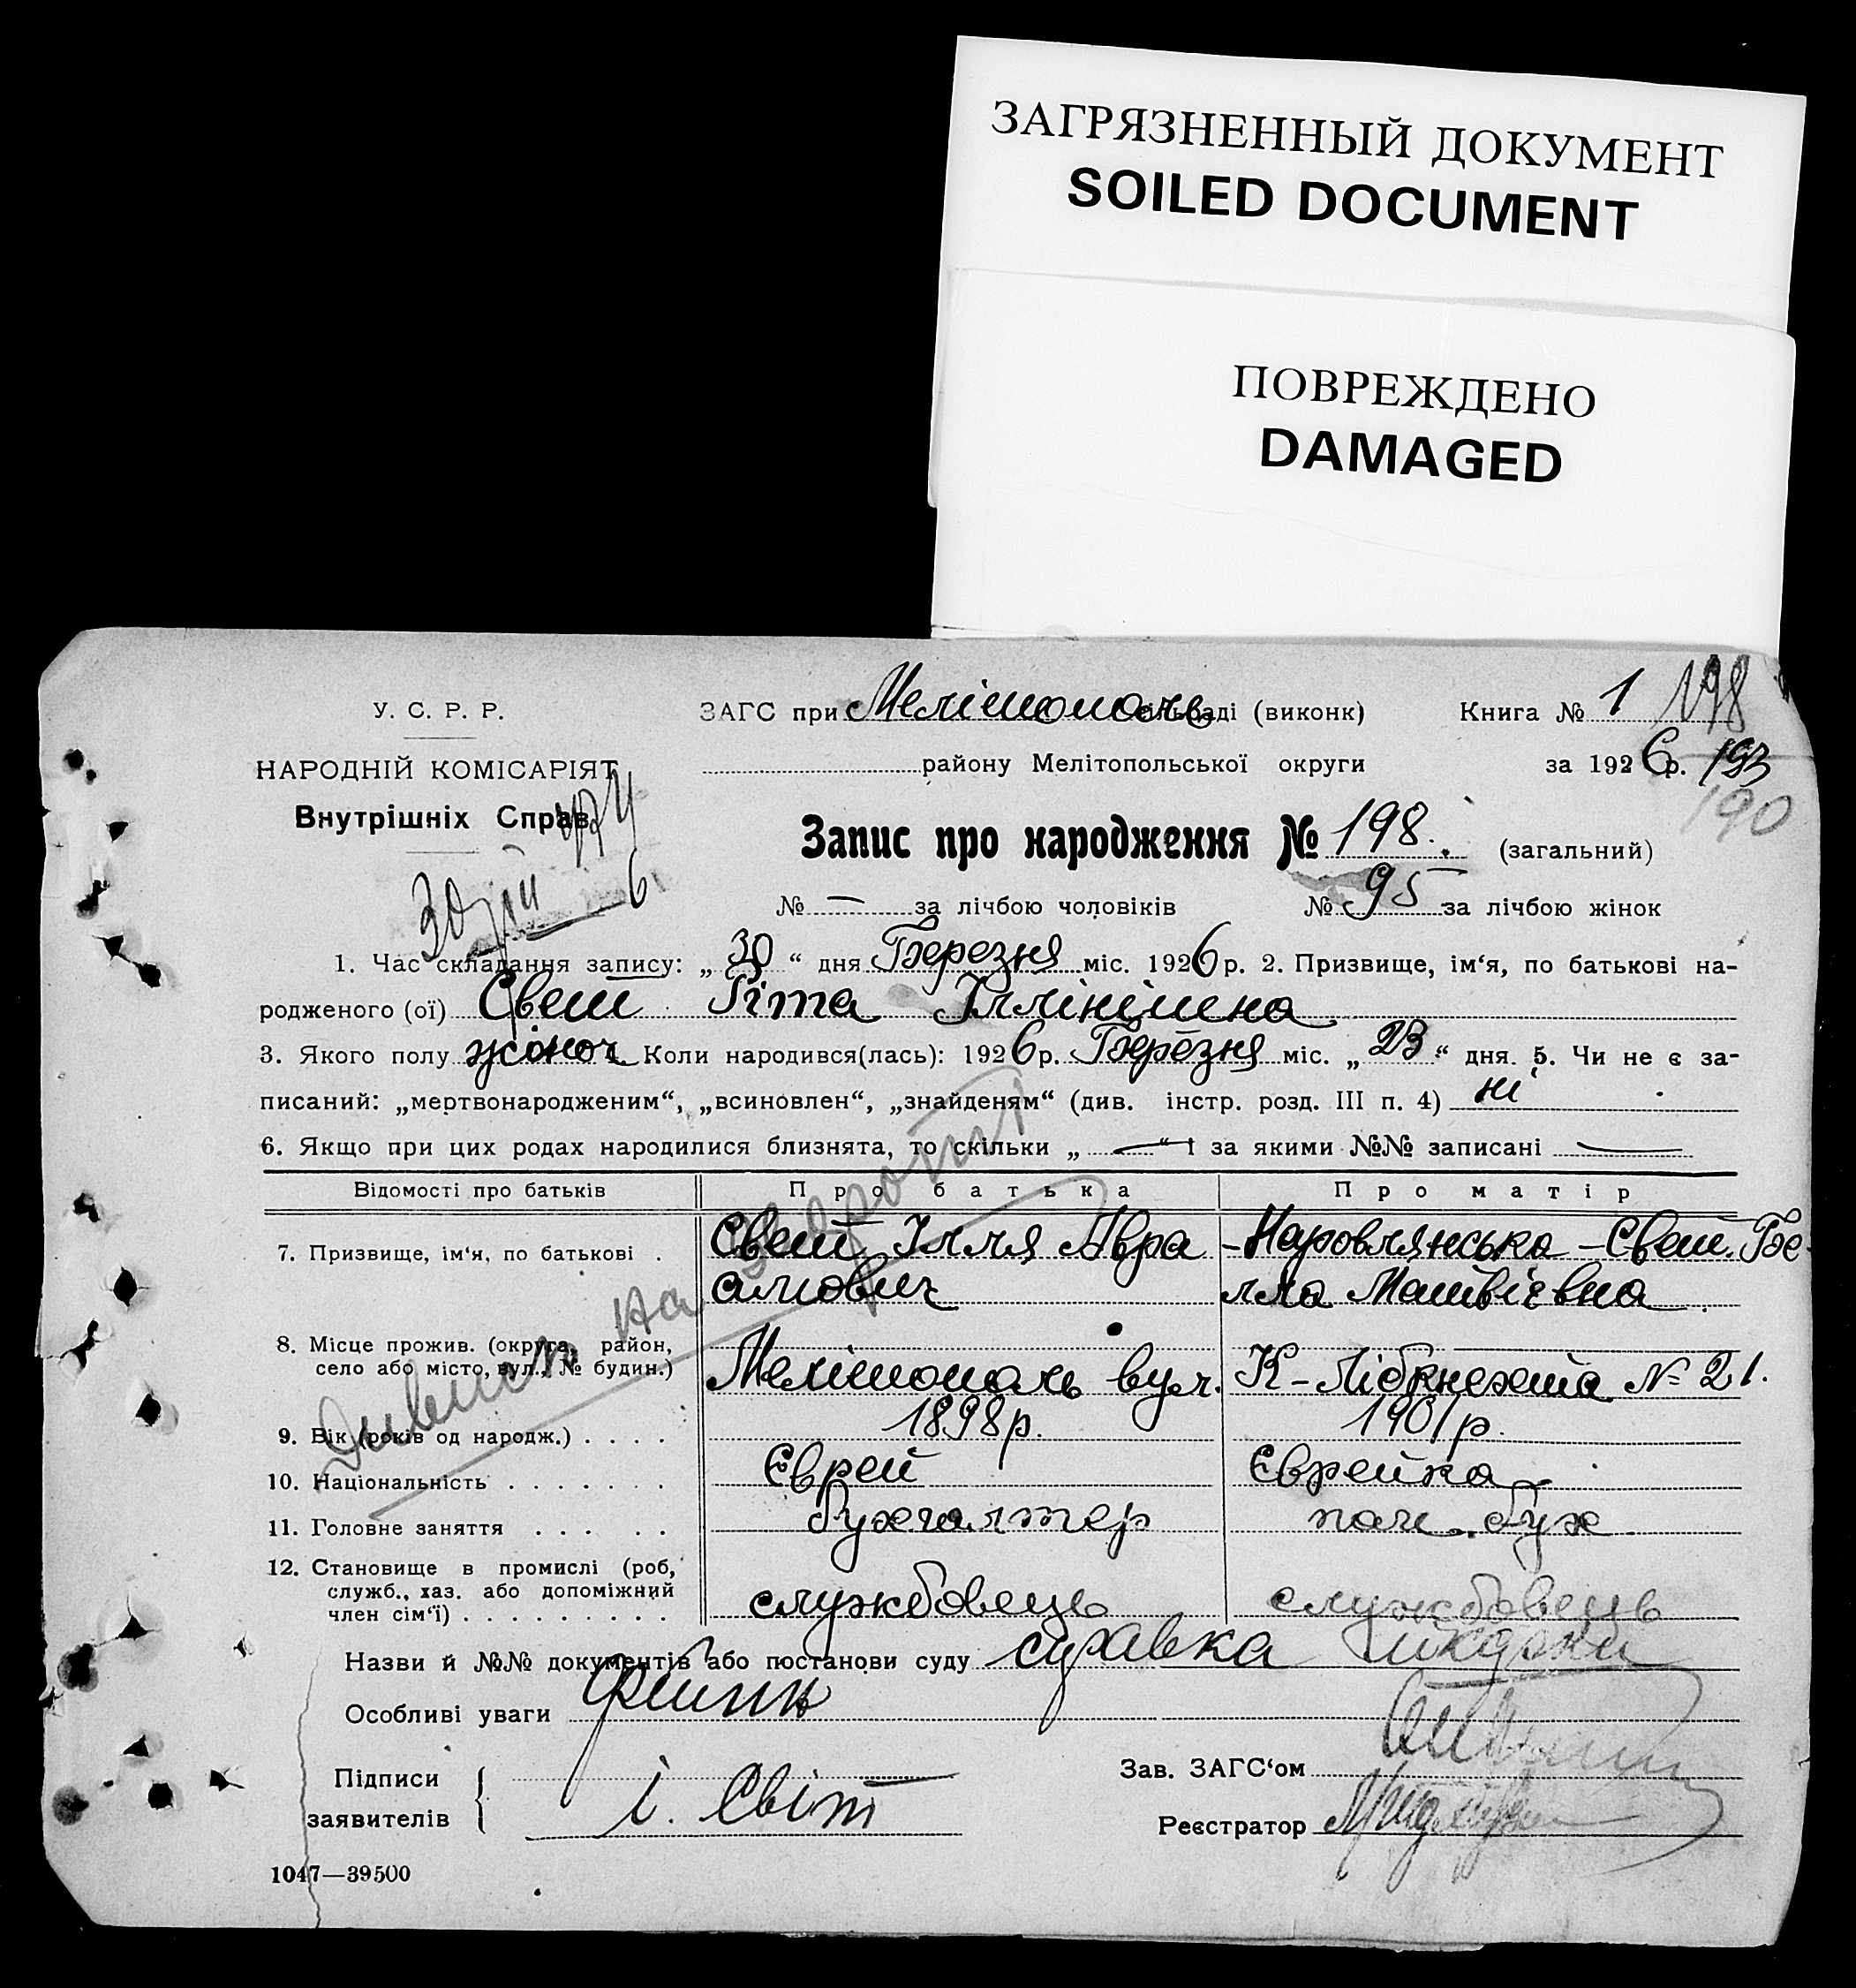 ЗАГРЯЗНЕННЫЙ ДОКУМЕНТ
SOILED DOCUMENT
ПОВРЕЖДЕНО
DAMAGED
У. С. Р. Р. ЗАГС при Мелітополь сільраді (виконк) Книга № 1 198
НАРОДНІЙ КОМІСАРІЯТ району Мелітопольської округи за 1926 р. 193
190
Внутрішніх Справ
Запис про народження № 198. (загальний)
30/III 6
№ — за лічбою чоловіків № 95 за лічбою жінок
1. Час складання запису: „ 30 “ дня Березня міс. 1926 р. 2. Призвище, ім‘я, по батькові на-
родженого (ої) Свет Ріта Іллінішна
3. Якого полу жіноч 4. Коли народився(лась): 1926 р. Березня міс. „ 23 “ дня. 5. Чи не є за-
писаний: „мертвонародженим“, „всиновлен“, „знайденям“ (див. інстр. розд. III п. 4) ні
6. Якщо при цих родах народилися близнята, то скільки „ — “ і за якими №№ записані —
Відомості про батьків Про батька Про матір
7. Призвище, ім‘я, по батькові . Свет Ілля Авра - Наровлянська - Свет. Бе-
амович лла Матвієвна
8. Місце прожив. (округа, район,
село або місто, вул., № будин.) Мелітополь вул. К-Лібкнехта № 21.
9. Вік (років од народж.) . . . . 1898 р. 1901 р.
10. Національність . . . . . . . Єврей Єврейка
11. Головне заняття . . . . . Бухгалтер пом. бух
12. Становище в промислі (роб,
служб., хаз. або допоміжний
член сім‘ї) . . . . . . . . . службовець службовець
Дивись на звороті
Назви й №№ документів або постанови суду справка
Особливі уваги
Підписи
заявителів { І. Світ
Зав. ЗАГС‘ом
Реєстратор
1047—39500